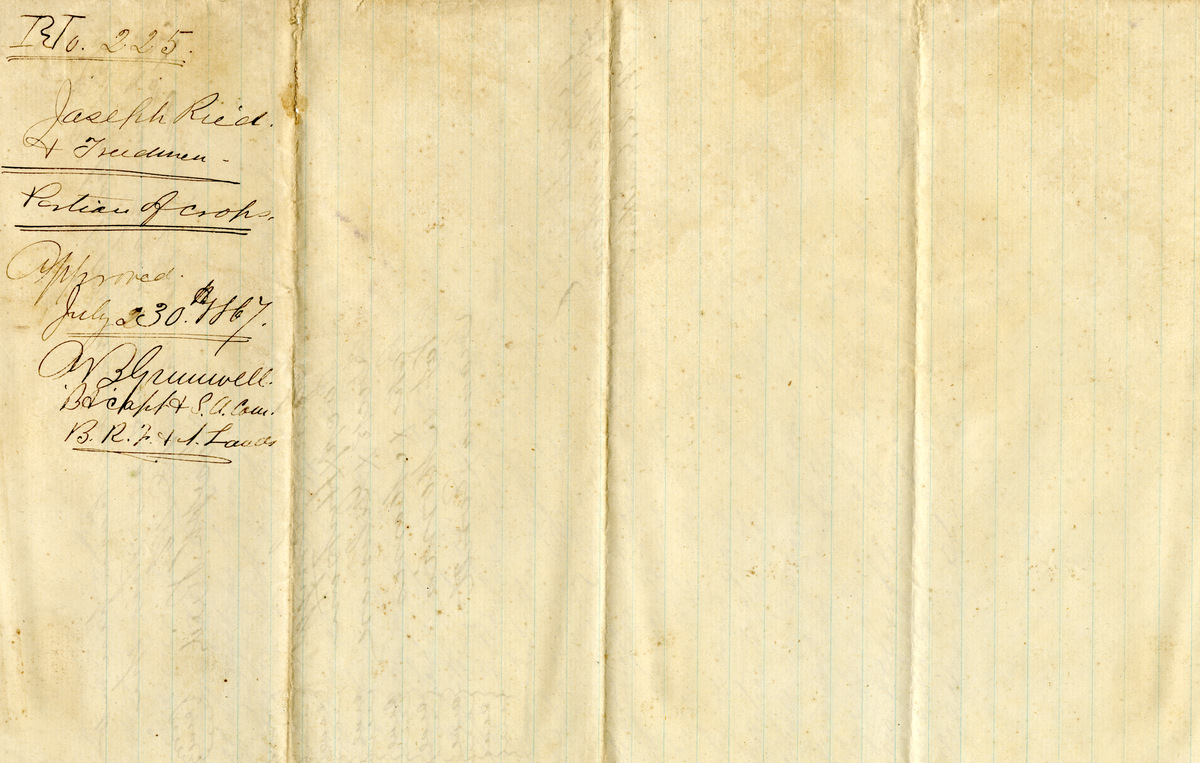 No. 225.
Joseph Ried.
& Freedmen -
Portion of crops.
Approved.
July 30th 1867.
Bt Capt & S. A. Com.
B. R. F. & A. Lands